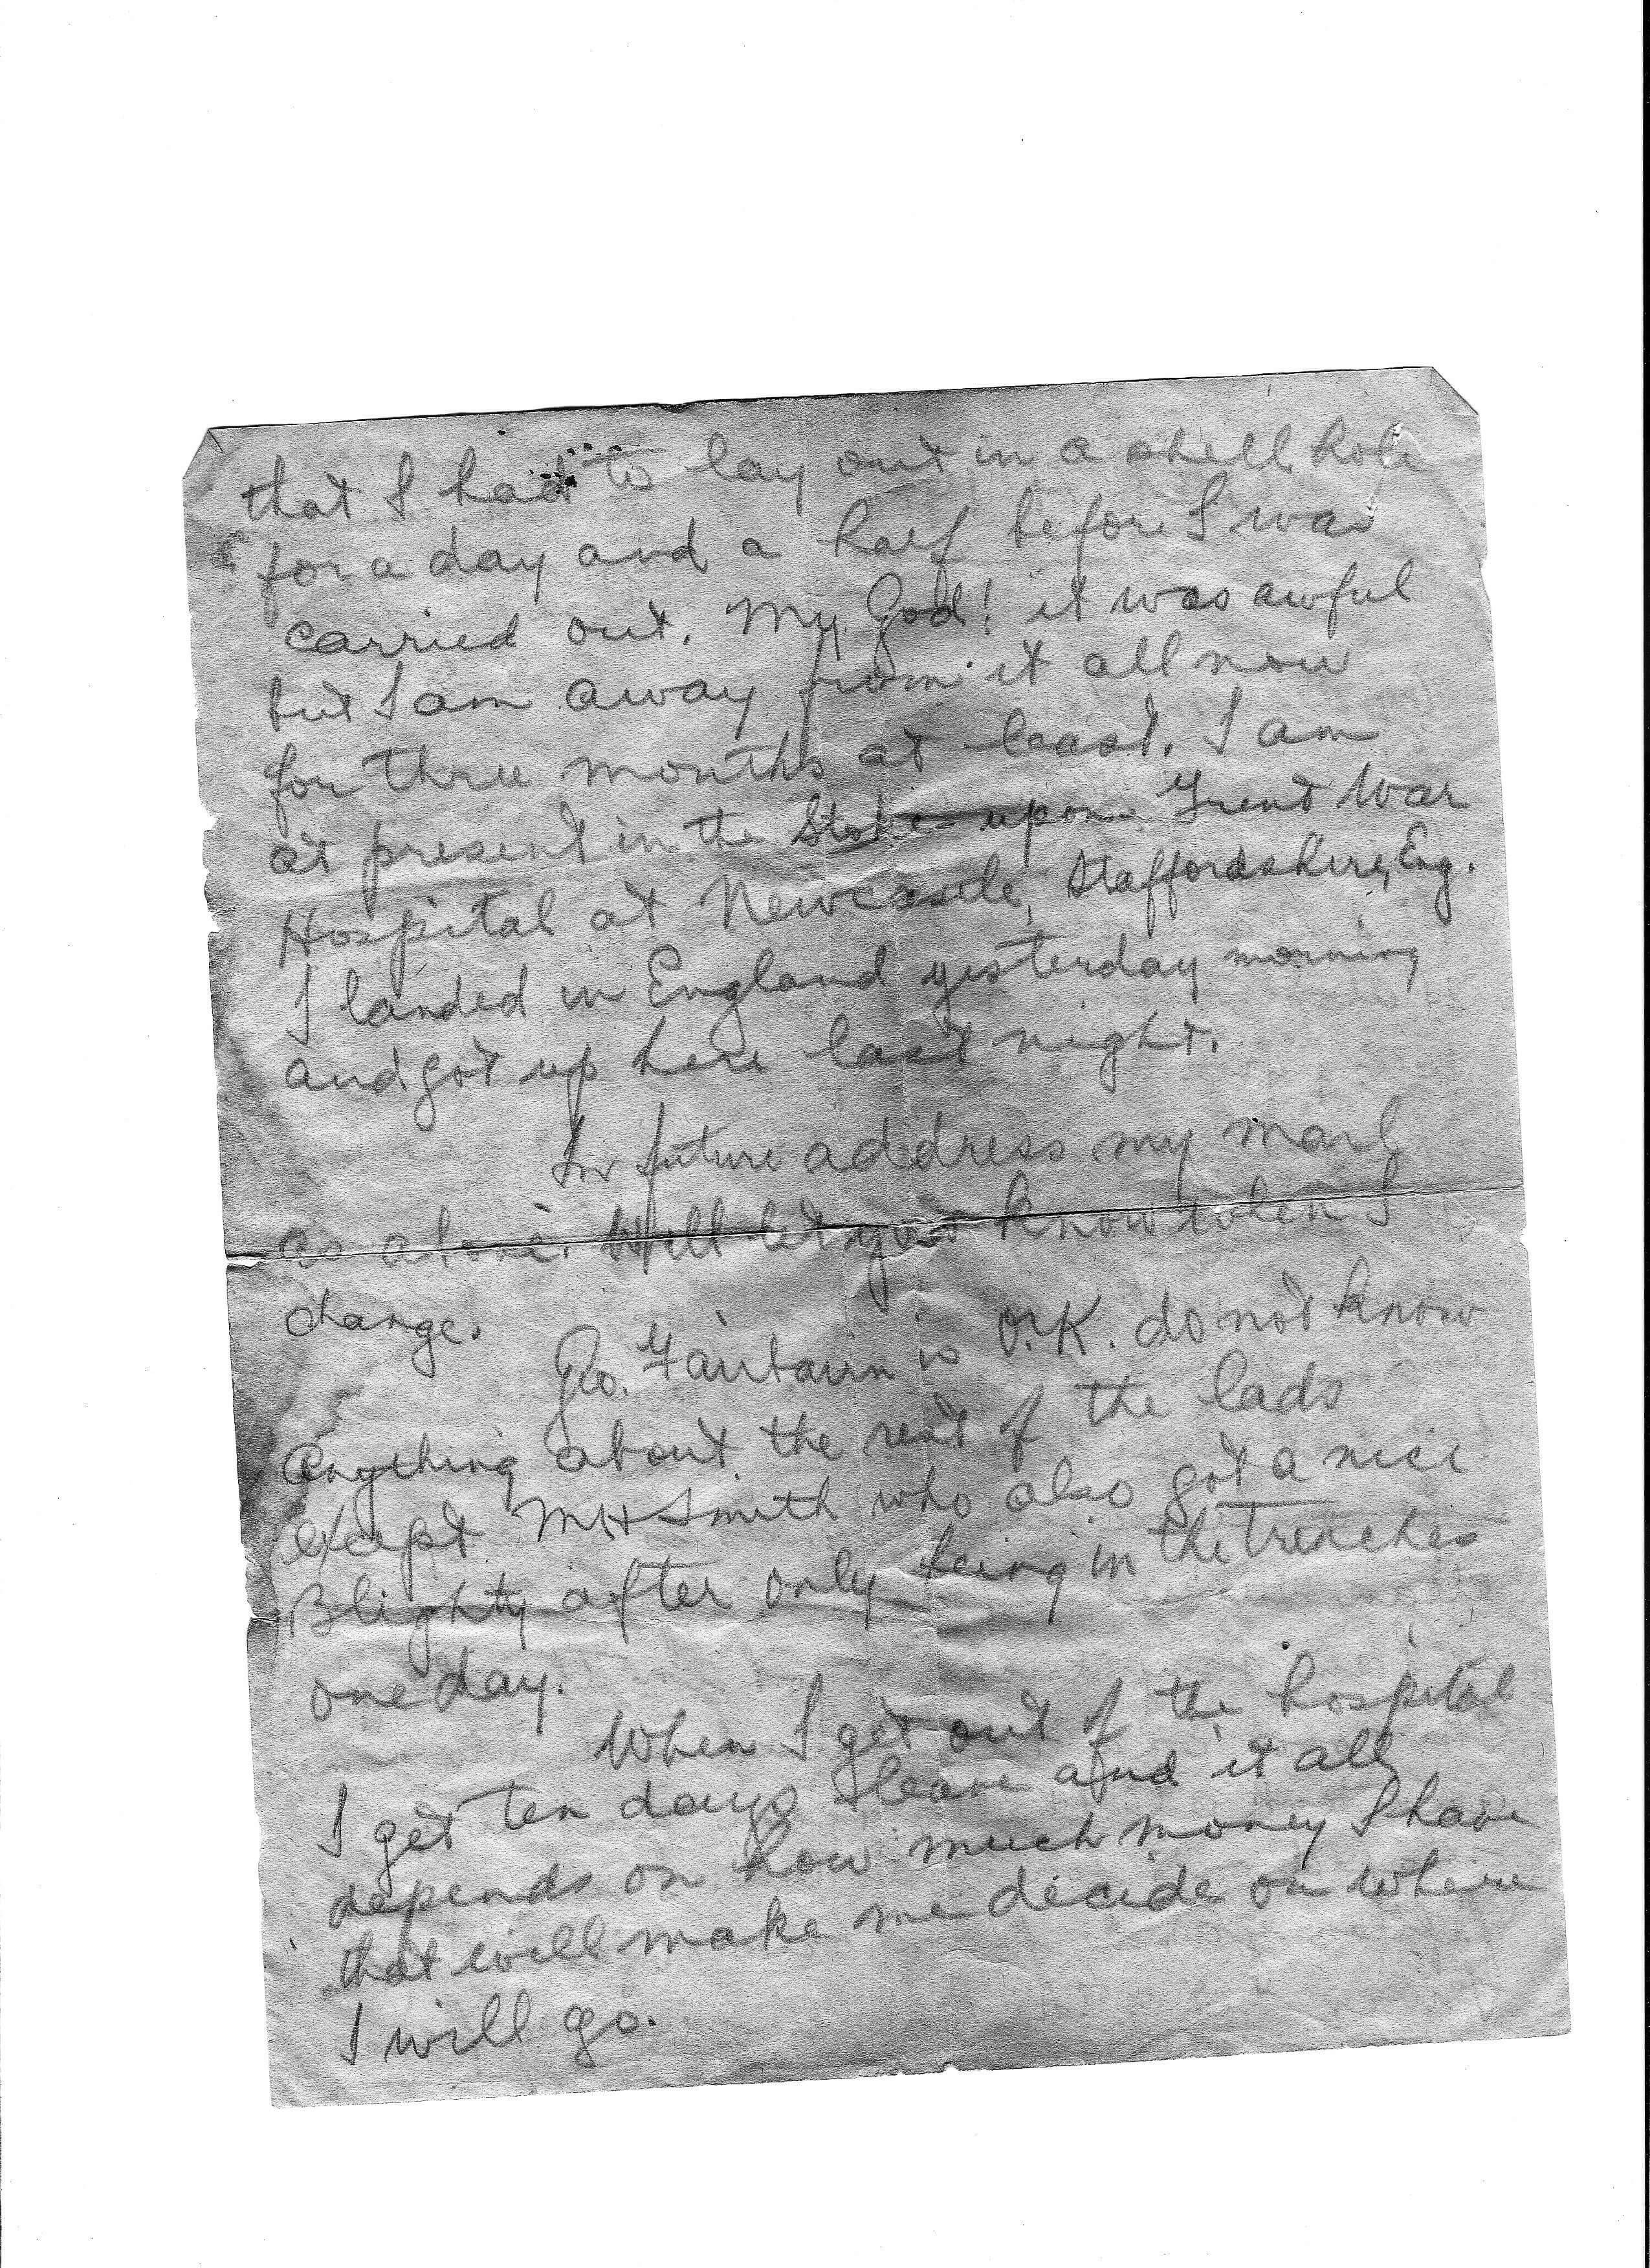 that I had to lay out in a shell hole
for a day and a half before I was
carried out. My God! it was awful
but I am away from it all now
for three months at least. I am
at present in the Stoke-upon-Trent War
Hospital at Newcastle, Staffordshire, Eng.
I landed in England yesterday morning
and got up here last night.
In future address my mail
as above. Will let you know when I
change.
Geo. Fairbairn is O.K. do not know
anything about the rest of the lads
except MH Smith who also got a nice
Blighty after only being in the trenches
one day.
When I get out of the hospital
I get ten days leave and it all
depends on how much money I have
that will make me decide on where
I will go.